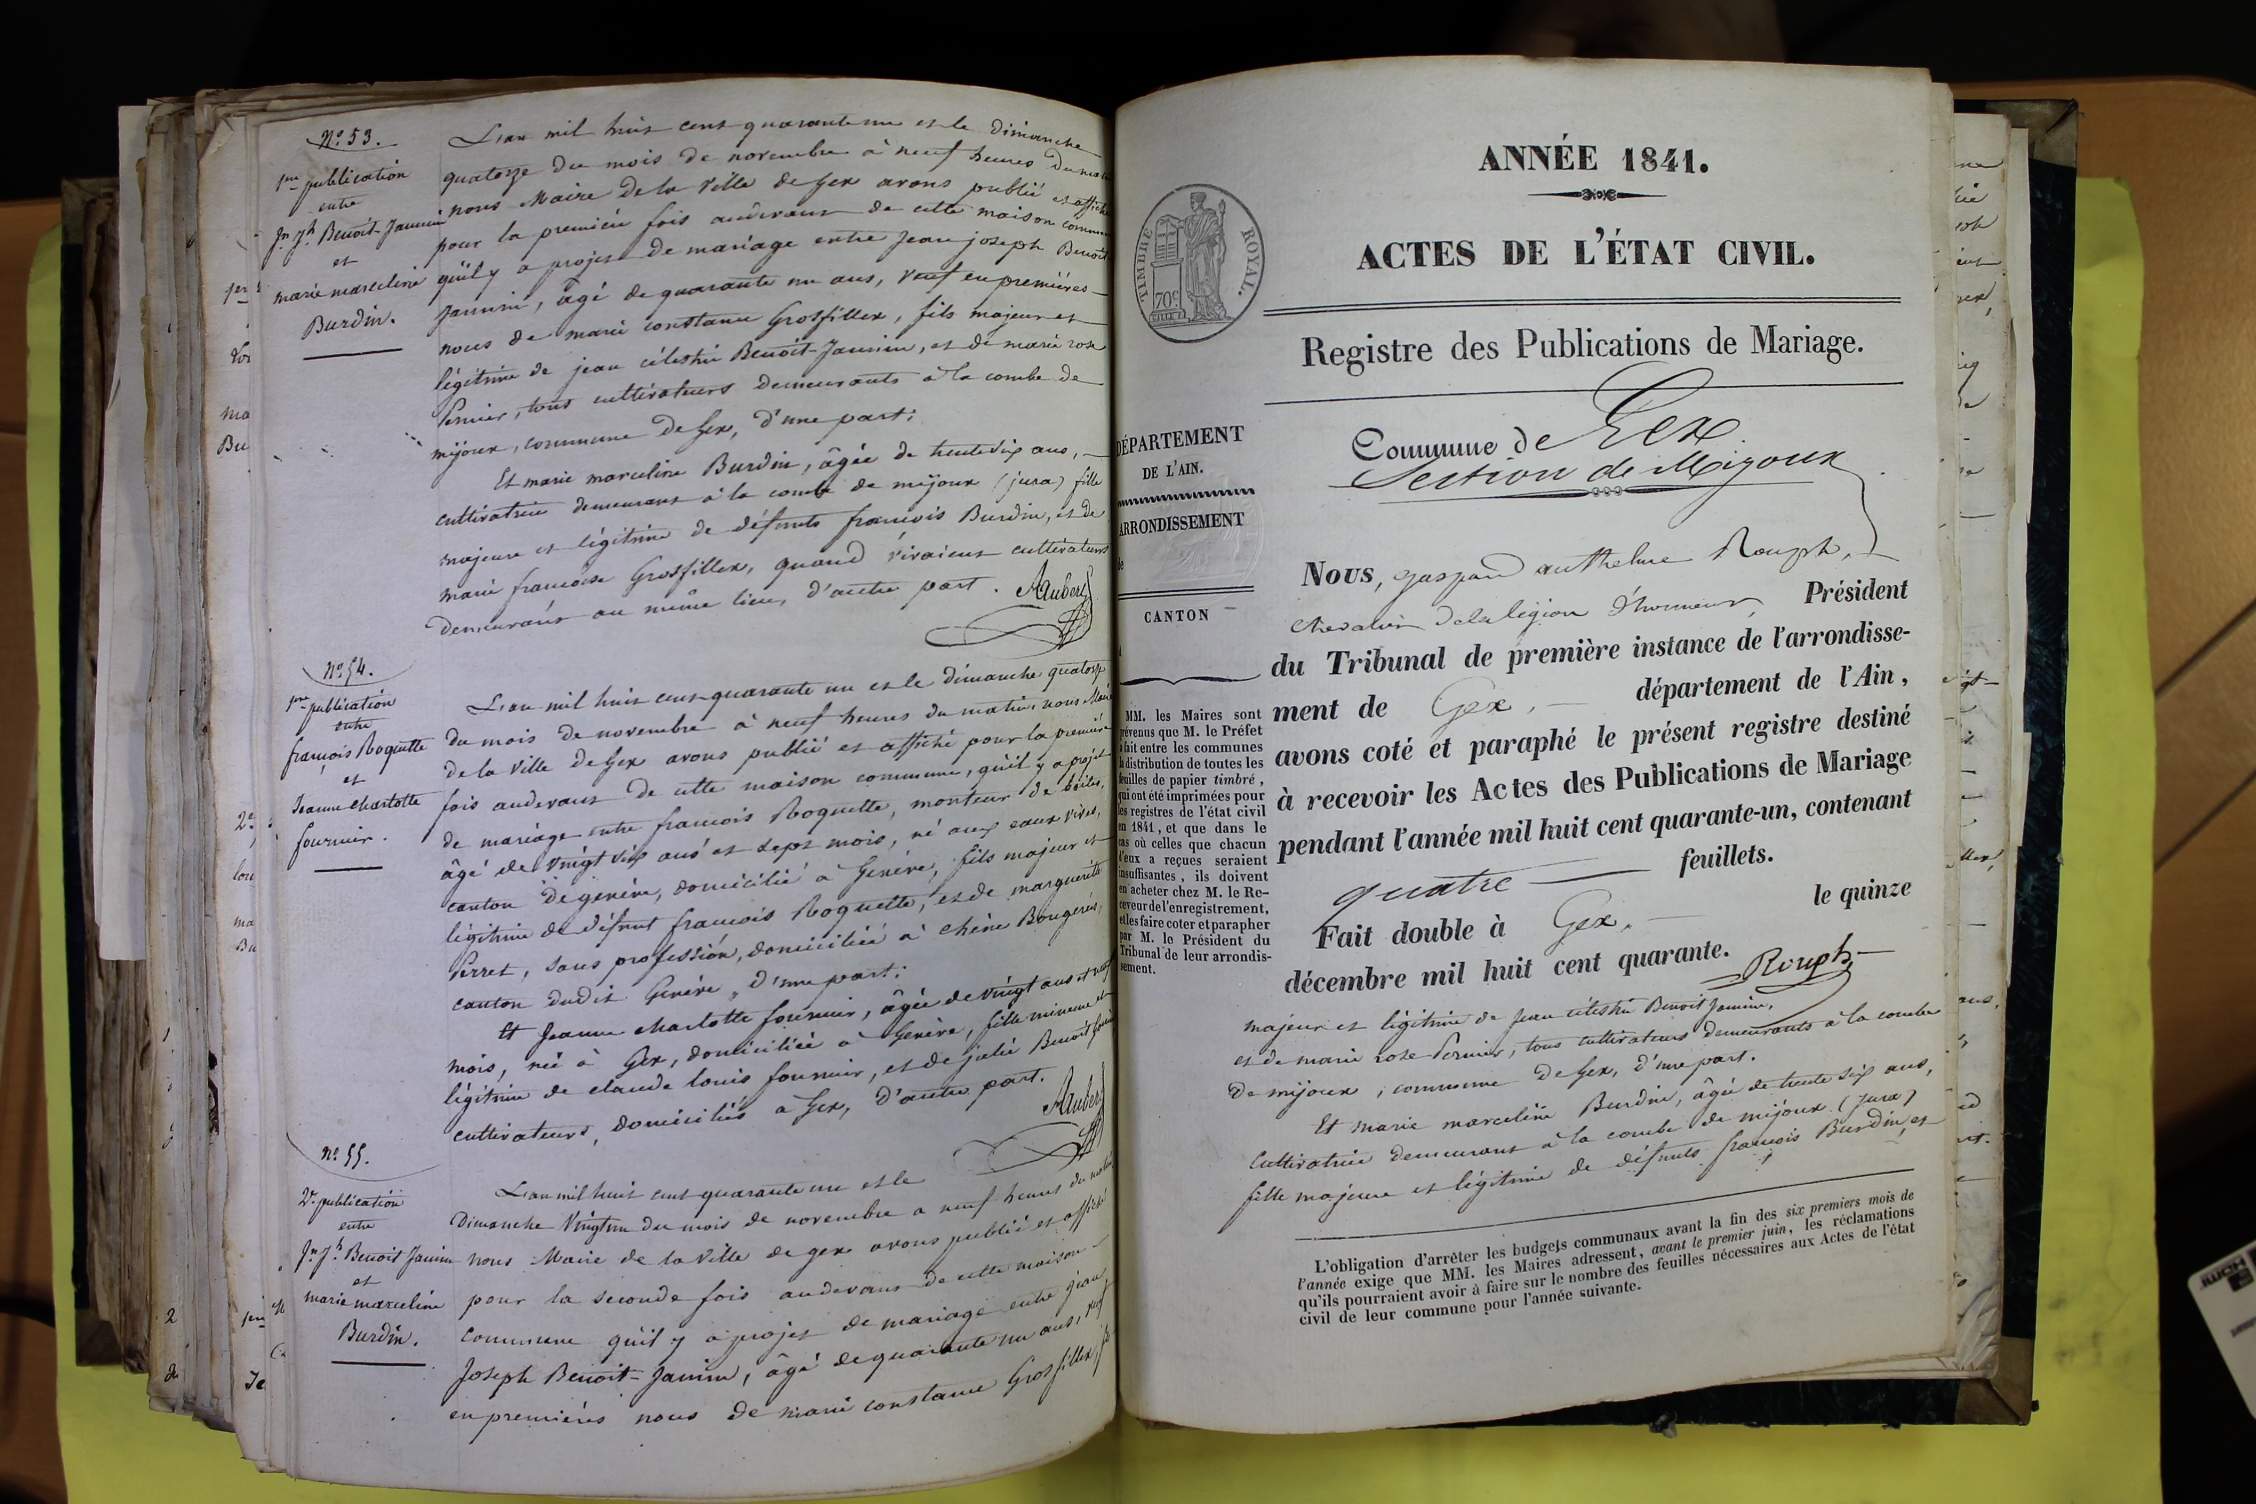 No 53.
1re publication
entre
Jn Jh Benoit-Jannin
et
marie marceline
Burdin.
L'an mil huit cent quarante un et le dimanche
quatorze du mois de novembre à neuf heures du matin
nous Maire de la Ville de Gex avons publié et affiché
pour la première fois audevant de cette maison commune
qu'il y a projet de mariage entre jean joseph Benoit
jannin, âgé de quarante un ans, veuf en premières
noces de marie constance Grosfillex, fils majeur et
légitime de jean célestin Benoit-Jannin, et de marie rose
Pernier, tous cultivateurs demeurants à la combe de
mijoux, commune de Gex, d'une part;
Et marie marceline Burdin, âgée de trente six ans,
cultivatrice demeurant à la combe de mijoux (jura) fille
majeure et légitime de défunts françois Burdin, et de
marie françoise Grosfillex, quand vivaient cultivateurs
demeurant au même lieu, d'autre part. Aubert
No 54.
1re publication
entre
françois Roquette
et
Jeanne charlotte
fournier.
L'an mil huit cent quarante un et le dimanche quatorze
du mois de novembre à neuf heures du matin, nous Maire
de la Ville de Gex avons publié et affiché pour la première
fois audevant de cette maison commune, qu'il y a projet
de mariage entre françois Roquette, monteur de boîtes,
âgé de vingt six ans et sept mois, né aux eaux vives,
canton de genève, domicilié à Genève, fils majeur et
légitime de défunt françois Roquette, et de marguerite
Perret, sans profession, domiciliée à chêne Bougeries,
canton dudit Genève, d'une part;
Et Jeanne charlotte fournier, âgée de vingt ans et neuf
mois, née à Gex, domiciliée à Genève, fille mineure et
légitime de claude louis fournier, et de julie Benoit
cultivateurs, domiciliés à Gex, d'autre part. Aubert
no 55.
2e publication
entre
Jn Jh Benoit Jannin
et
marie marceline
Burdin.
L'an mil huit cent quarante un et le
Dimanche Vingt un du mois de novembre a neuf heures du matin
nous Maire de la Ville de gex avons publié et affiché
pour la seconde fois audevant de cette maison
commune qu'il y a projet de mariage entre jean
Joseph Benoit-Jannin, âgé de quarante un ans, veuf
en premières noces de marie constance Grosfillex, fils
ANNÉE 1841.
ACTES DE L'ÉTAT CIVIL.
TIMBRE ROYAL.
70c
Registre des Publications de Mariage.
Commune de Gex
Section de Mijoux
DÉPARTEMENT
DE L'AIN.
ARRONDISSEMENT
de
CANTON
MM. les Maires sont
prévenus que M. le Préfet
a fait entre les communes
la distribution de toutes les
feuilles de papier timbré,
qui ont été imprimées pour
les registres de l'état civil
en 1841, et que dans le
cas où celles que chacun
d'eux a reçues seraient
insuffisantes, ils doivent
en acheter chez M. le Re-
ceveur de l'enregistrement,
et les faire coter et parapher
par M. le Président du
Tribunal de leur arrondis-
sement.
Nous, gaspard anthelme Rouph,
chevalier de la légion d'honneur, Président
du Tribunal de première instance de l'arrondisse-
ment de Gex, département de l'Ain,
avons coté et paraphé le présent registre destiné
à recevoir les Actes des Publications de Mariage
pendant l'année mil huit cent quarante-un, contenant
quatre feuillets.
Fait double à Gex, le quinze
décembre mil huit cent quarante.
Rouph
majeur et légitime de Jean célestin Benoit Jannin,
et de marie rose Pernier, tous cultivateurs demeurants à la combe
de mijoux, commune de Gex, d'une part.
Et marie marceline Burdin, âgée de trente six ans,
Cultivatrice demeurant à la combe de mijoux (jura)
fille majeure et légitime de défunts françois Burdin, et
L'obligation d'arrêter les budgets communaux avant la fin des six premiers mois de
l'année exige que MM. les Maires adressent, avant le premier juin, les réclamations
qu'ils pourraient avoir à faire sur le nombre des feuilles nécessaires aux Actes de l'état
civil de leur commune pour l'année suivante.